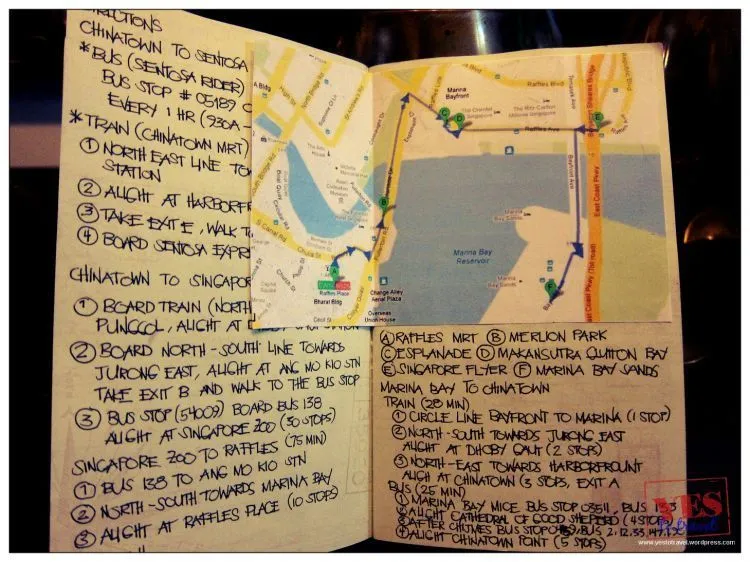 DIRECTIONS
CHINATOWN TO SENTOSA
* BUS (SENTOSA RIDER)
BUS STOP # 05189
EVERY 1 HR (930A-
* TRAIN (CHINATOWN MRT)
① NORTH EAST LINE TO
STATION
② ALIGHT AT HARBORFR
③ TAKE EXIT E, WALK T
④ BOARD SENTOSA EXPR
CHINATOWN TO SINGAPOR
① BOARD TRAIN (NORTH
PUNGGOL, ALIGHT AT
② BOARD NORTH-SOUTH LINE TOWARDS
JURONG EAST, ALIGHT AT ANG MO KIO STN
TAKE EXIT B AND WALK TO THE BUS STOP
③ BUS STOP (54009) BOARD BUS 138
ALIGHT AT SINGAPORE ZOO (30 STOPS)
SINGAPORE ZOO TO RAFFLES (75 MIN)
① BUS 138 TO ANG MO KIO STN
② NORTH-SOUTH TOWARDS MARINA BAY
③ ALIGHT AT RAFFLES PLACE (10 STOPS)
A Bldg
North Bridge Rd
South Bridge Rd
S Canal Rd
Chulia St
Church St
Raffles Place
Bharat Bldg
Cecil St
Change Alley
Aerial Plaza
Overseas
Union House
Marina
Bayfront
The Oriental
Singapore
The Ritz-Carlton
Millenia Singapore
Raffles Blvd
Raffles Ave
Temasek Ave
Bayfront Ave
Benjamin Sheares Bridge
East Coast Pkwy
East Coast Pkwy (Toll road)
Marina Bay
Reservoir
Marina
Bay Sands
Marina Bay
Sands
A
B
C
D
E
F
Ⓐ RAFFLES MRT Ⓑ MERLION PARK
Ⓒ ESPLANADE Ⓓ MAKANSUTRA GLUTTON BAY
Ⓔ SINGAPORE FLYER Ⓕ MARINA BAY SANDS
MARINA BAY TO CHINATOWN
TRAIN (28 MIN)
① CIRCLE LINE BAYFRONT TO MARINA (1 STOP)
② NORTH-SOUTH TOWARDS JURONG EAST
ALIGHT AT DHOBY GAUT (2 STOPS)
③ NORTH-EAST TOWARDS HARBORFROUNT
ALIGH AT CHINATOWN (3 STOPS, EXIT A
BUS (25 MIN)
① MARINA BAY MICE BUS STOP 03511, BUS 133
② ALIGHT CATHEDRAL OF GOOD SHEPERD (4 STOPS)
③ AFTER CHIJMES BUS STOP BUS 2, 12, 33, 147
④ ALIGHT CHINATOWN POINT (5 STOPS)
YES
to travel
www.yestotravel.wordpress.com